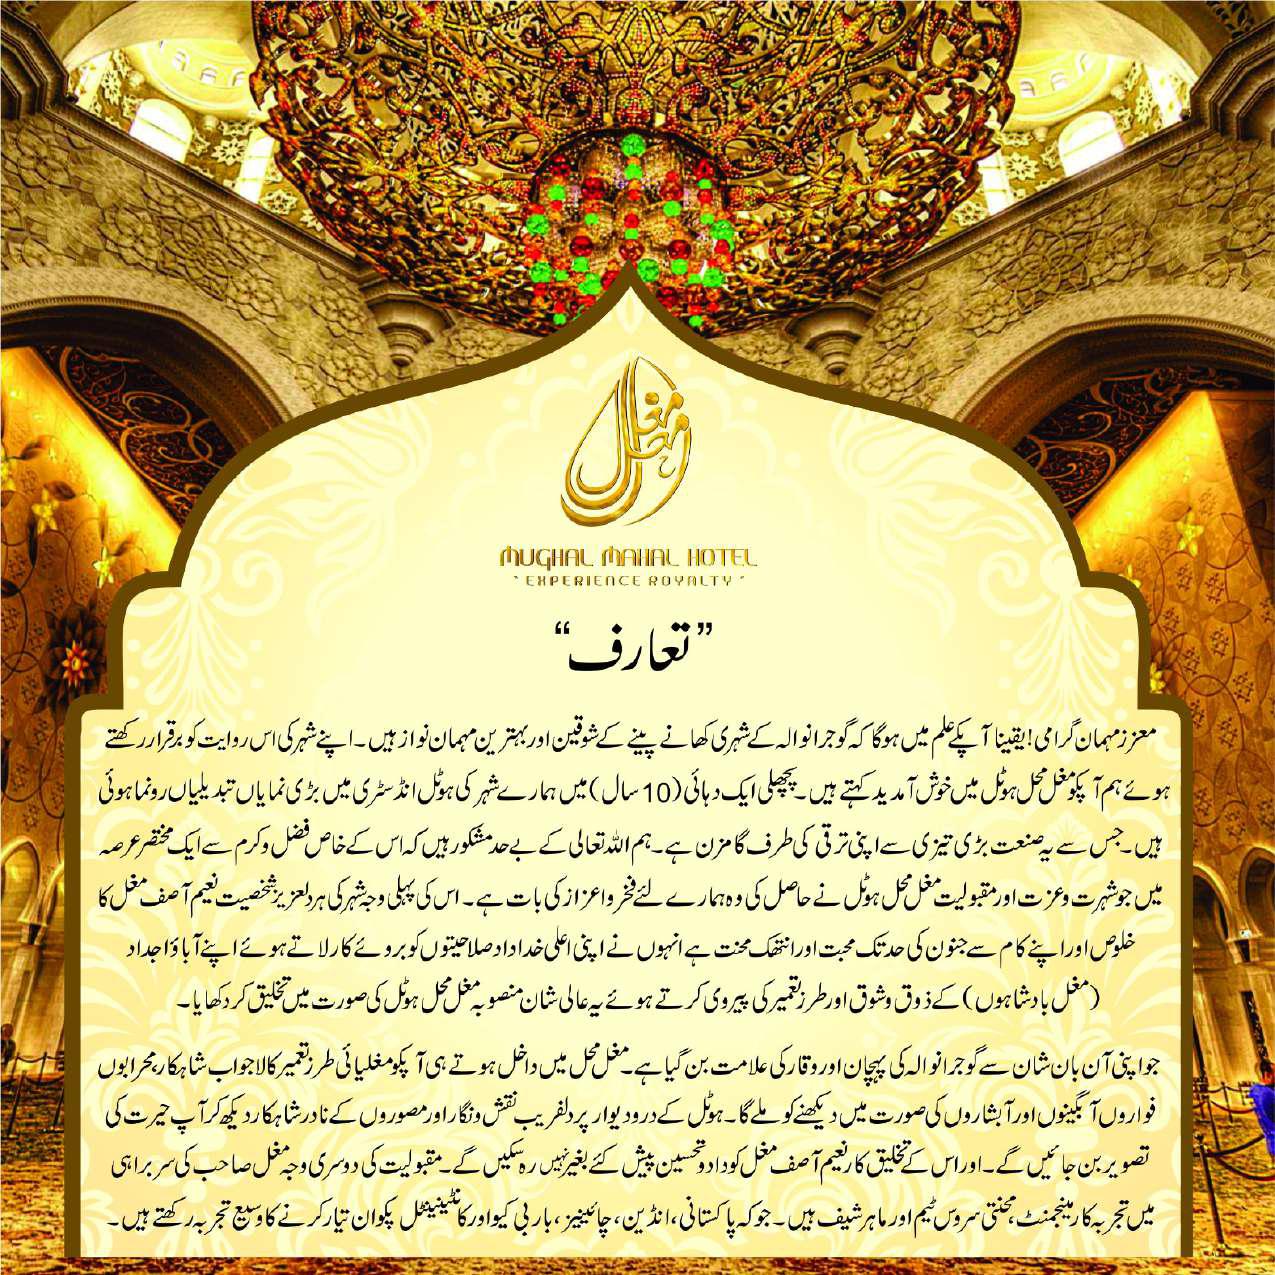 مغل محل
MUGHAL MAHAL HOTEL
`EXPERIENCE ROYALTY´
”تعارف“
معزز مہمان گرامی! یقینا آپکے علم میں ہوگا کہ گوجرانوالہ کے شہری کھانے پینے کے شوقین اور بہترین مہمان نواز ہیں۔ اپنے شہر کی اس روایت کو برقرار رکھتے
ہوئے ہم آپکو مغل محل ہوٹل میں خوش آمدید کہتے ہیں۔ پچھلی ایک دہائی (10 سال) میں ہمارے شہر کی ہوٹل انڈسٹری میں بڑی نمایاں تبدیلیاں رونما ہوئی
ہیں۔ جس سے یہ صنعت بڑی تیزی سے اپنی ترقی کی طرف گامزن ہے۔ ہم اللہ تعالی کے بے حد مشکور ہیں کہ اس کے خاص فضل و کرم سے ایک مختصر عرصہ
میں جو شہرت و عزت اور مقبولیت مغل محل ہوٹل نے حاصل کی وہ ہمارے لئے فخر و اعزاز کی بات ہے۔ اس کی پہلی وجہ شہر کی ہر دلعزیز شخصیت نعیم آصف مغل کا
خلوص اور اپنے کام سے جنون کی حد تک محبت اور انتھک محنت ہے انہوں نے اپنی اعلی خداداد صلاحیتوں کو بروئے کار لاتے ہوئے اپنے آباؤ اجداد
(مغل بادشاہوں) کے ذوق و شوق اور طرز تعمیر کی پیروی کرتے ہوئے یہ عالی شان منصوبہ مغل محل ہوٹل کی صورت میں تخلیق کر دکھایا۔
جو اپنی آن بان شان سے گوجرانوالہ کی پہچان اور وقار کی علامت بن گیا ہے۔ مغل محل میں داخل ہوتے ہی آپکو مغلیائی طرز تعمیر کا لاجواب شاہکار، محرابوں
فواروں آبگینوں اور آبشاروں کی صورت میں دیکھنے کو ملے گا۔ ہوٹل کے در و دیوار پر دلفریب نقش و نگار اور مصوروں کے نادر شاہکار دیکھ کر آپ حیرت کی
تصویر بن جائیں گے۔ اور اس کے تخلیق کار نعیم آصف مغل کو داد و تحسین پیش کئے بغیر نہیں رہ سکیں گے۔ مقبولیت کی دوسری وجہ مغل صاحب کی سربراہی
میں تجربہ کار مینجمنٹ، محنتی سروس ٹیم اور ماہر شیف ہیں۔ جو کہ پاکستانی، انڈین، چائینیز، باربی کیو اور کانٹینینٹل پکوان تیار کرنے کا وسیع تجربہ رکھتے ہیں۔